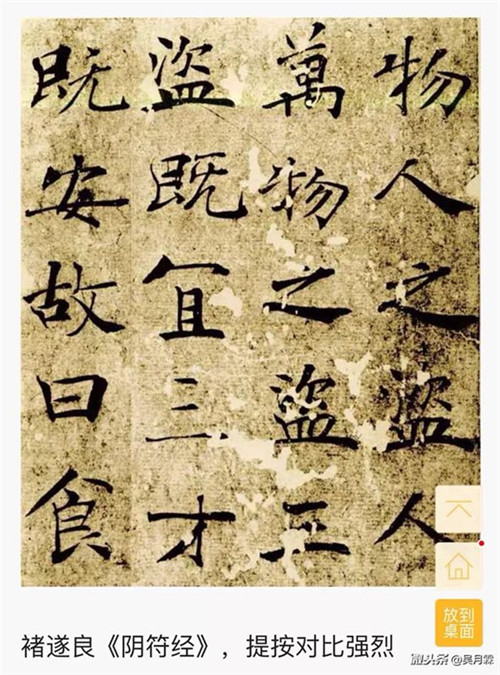 物人之盜人
萬物之盜三
盜既宜三才
既安故曰食
放到
桌面
褚遂良《阴符经》，提按对比强烈
微头条 @吴月霖